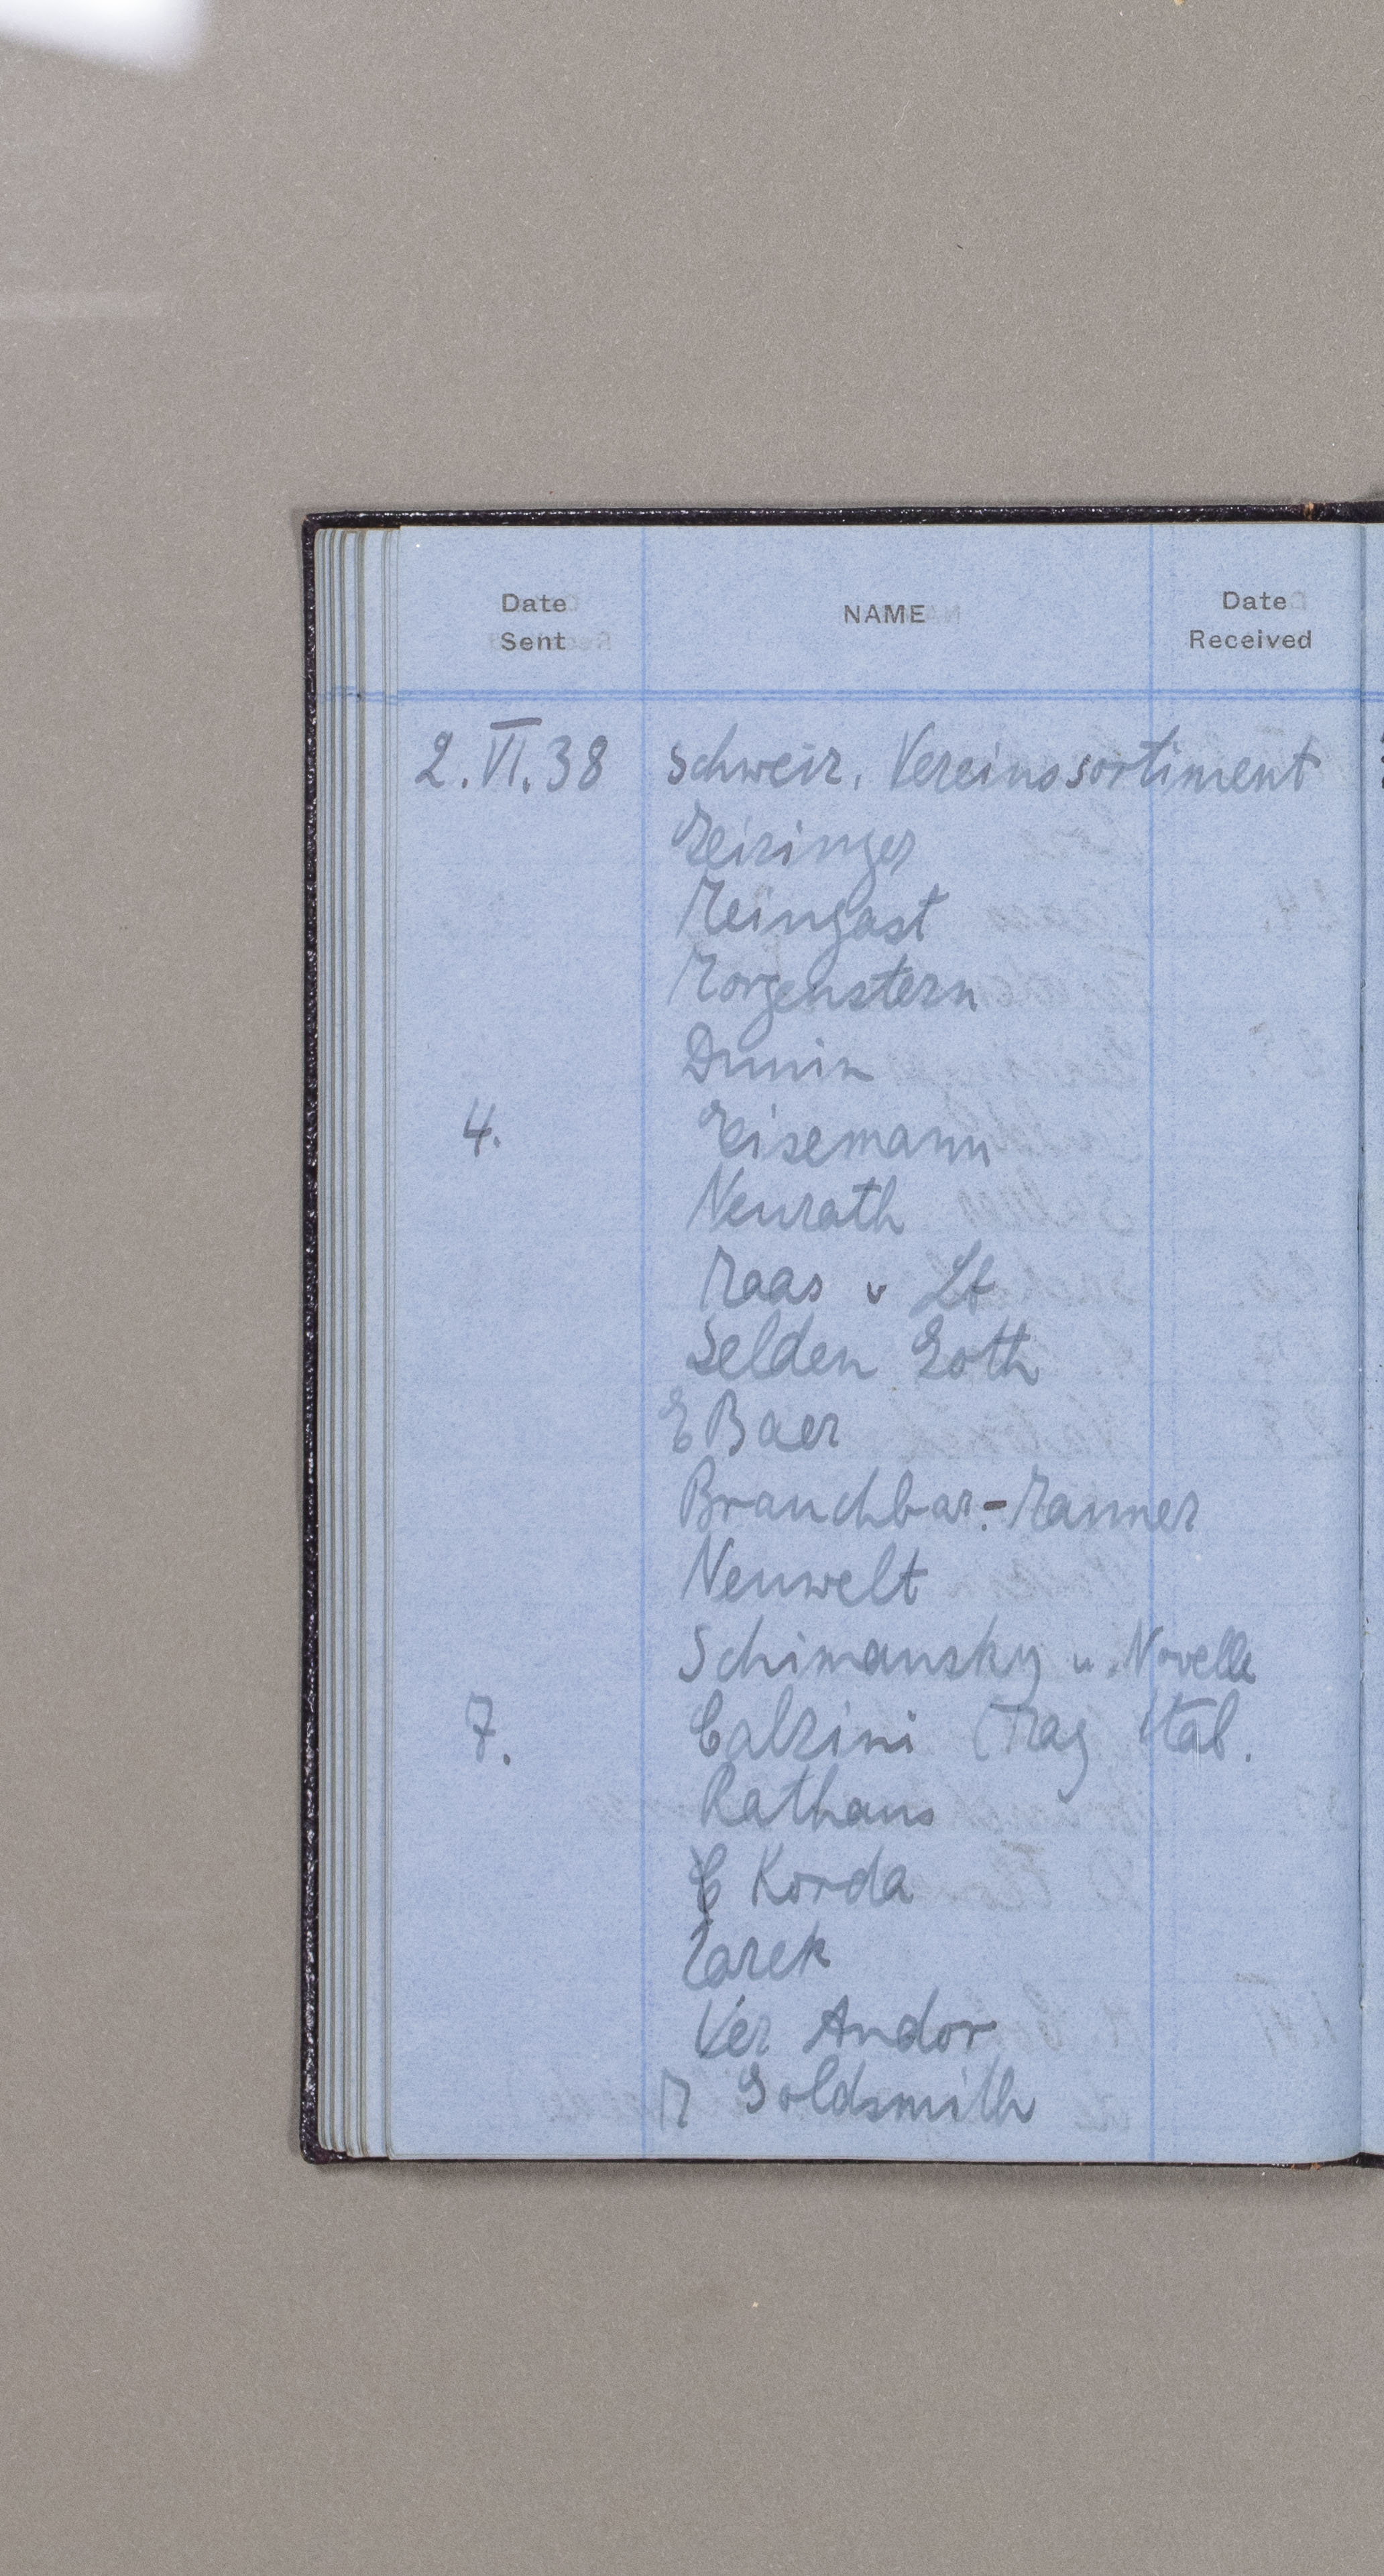 Date Sent NAME Date Received
2. VI. 38 Schweiz. Vereinssortiment
Geiringer
Meingast
Morgenstern
Dunin
4. Eisemann
Neurath
Maas u Lt
Selden Goth
E Baer
Brauchbar.-Hammer
Neuwelt
Schimansky u. Novelle
7. Calzini (Trag Ital.
Rathaus
C Korda
Zarek
Vér Andor
M Goldsmith